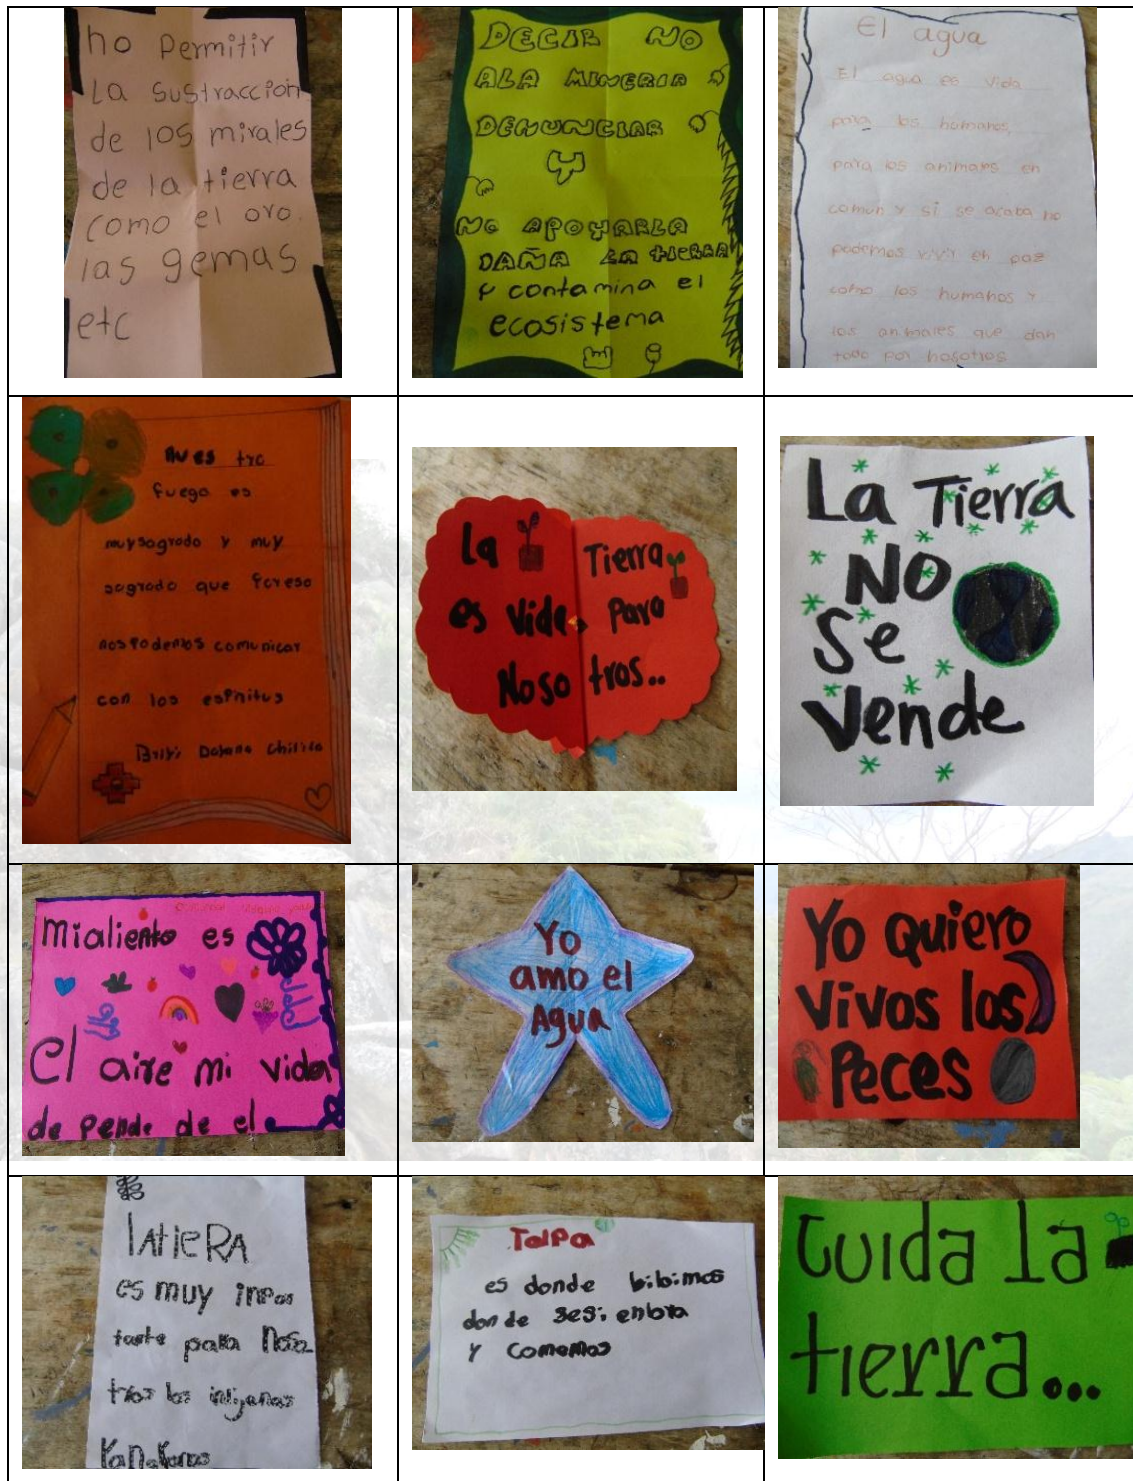 no Permitir
La sustracción
de los mirales
de la tierra
como el oro.
las gemas
etc
DECIR NO
ALA MINERIA
DENUNCIAR
Y
NO APOYARLA
DAÑA LA tIERRA
y contamina el
ecosistema
El agua
El agua es vida
para los humanos,
para los animales en
comun y si se acaba no
podemos vivir en paz
como los humanos y
los animales que dan
todo por nosotros
nues tro
fuego es
muysagrado y muy
sagrado que Poreso
nosPodemos comunicar
con los espiritus
La Tierra
es vida Para
Noso tros..
La Tierra
NO
Se
Vende
Mialiento es
El aire mi vida
de pende de el
Yo
amo el
Agua
Yo Quiero
vivos los
Peces
lATieRA
es muy inpor
tante para Noso
tros los
TalPa
es donde bibimos
don de sesi enbra
Y comemos
Cuida la
tierra...